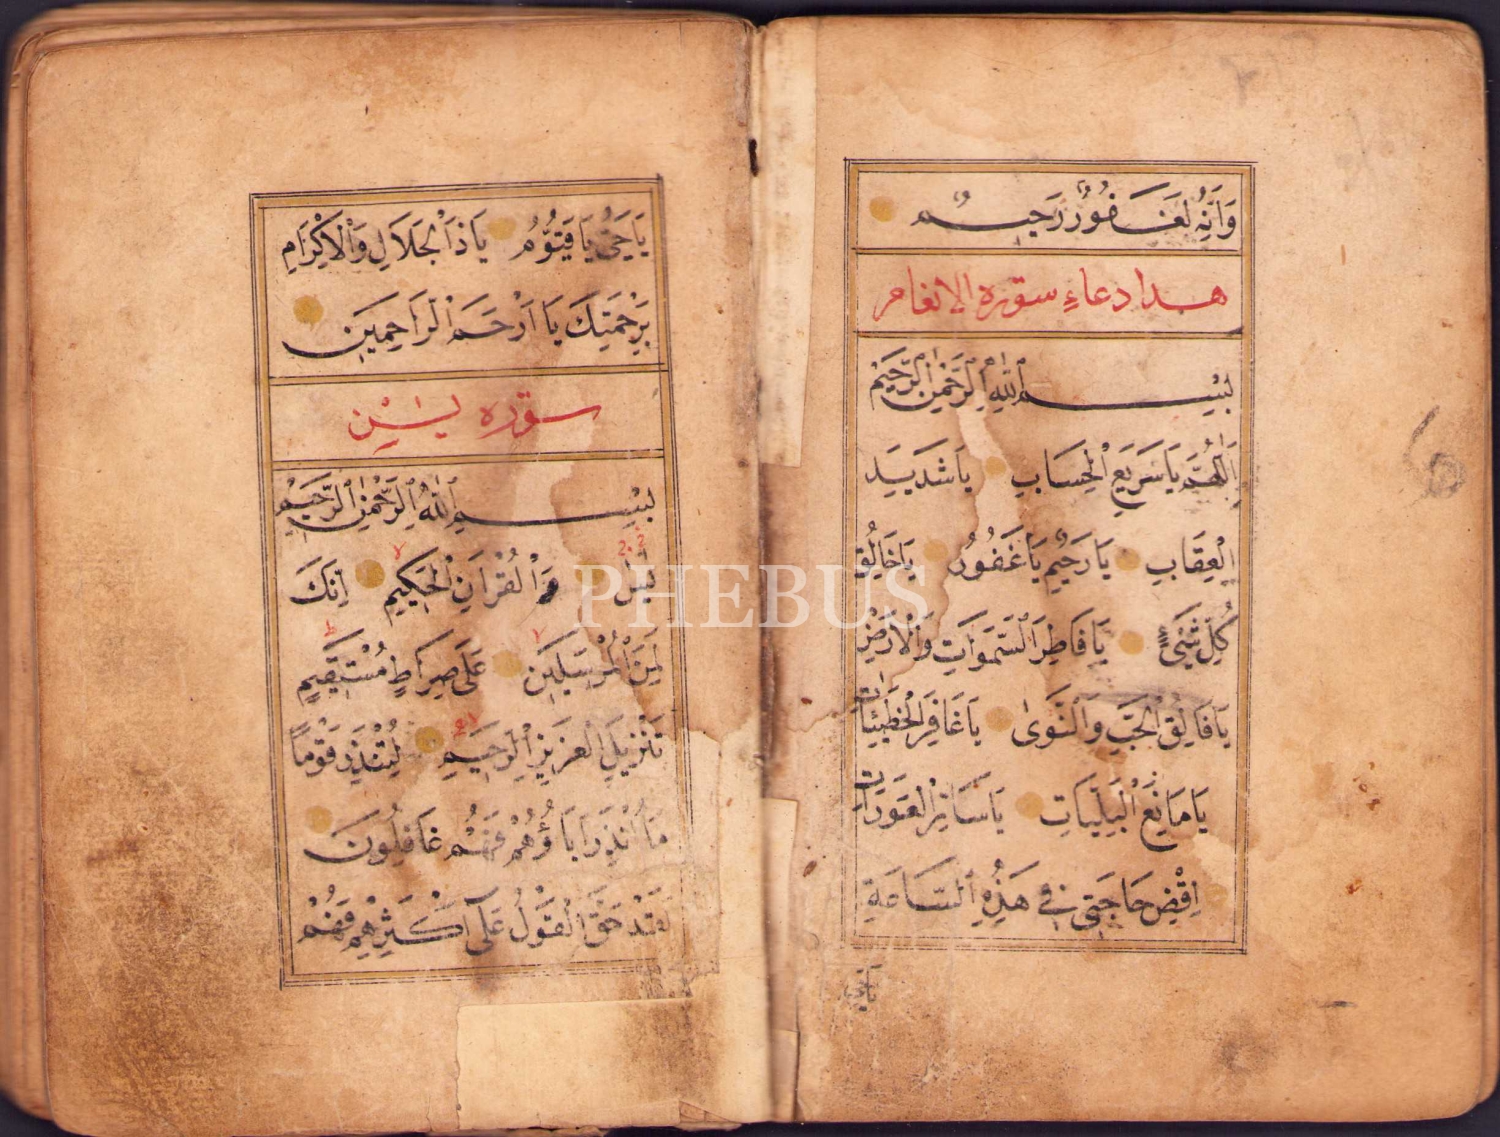 وَاِنَّهُ لَغَفُورٌ رَحِيمٌ
هذا دعاء سورة الانعام
بِسْمِ اللّٰهِ الرَّحْمٰنِ الرَّحِيمِ
اَللّٰهُمَّ يَا سَرِيعَ الْحِسَابِ يَا شَدِيدَ
الْعِقَابِ يَا رَحِيمُ يَا غَفُورُ يَا خَالِقَ
كُلِّ شَيْءٍ يَا فَاطِرَ السَّمٰوَاتِ وَالْاَرْضِ
يَا فَالِقَ الْحَبِّ وَالنَّوٰى يَا غَافِرَ الْخَطِيئَاتِ
يَا مَانِعَ الْبَلِيَّاتِ يَا سَاتِرَ الْعَوْرَاتِ
اِقْضِ حَاجَتِي فِي هٰذِهِ السَّاعَةِ
يَا حَيُّ
يَا حَيُّ يَا قَيُّومُ يَا ذَا الْجَلَالِ وَالْاِكْرَامِ
بِرَحْمَتِكَ يَا اَرْحَمَ الرَّاحِمِينَ
سورة يٰسٓ
بِسْمِ اللّٰهِ الرَّحْمٰنِ الرَّحِيمِ
يٰسٓ وَالْقُرْاٰنِ الْحَكِيمِ اِنَّكَ
لَمِنَ الْمُرْسَلِينَ عَلٰى صِرَاطٍ مُسْتَقِيمٍ
تَنْزِيلَ الْعَزِيزِ الرَّحِيمِ لِتُنْذِرَ قَوْمًا
مَا اُنْذِرَ اٰبَاؤُهُمْ فَهُمْ غَافِلُونَ
لَقَدْ حَقَّ الْقَوْلُ عَلٰى اَكْثَرِهِمْ فَهُمْ
PHEBUS